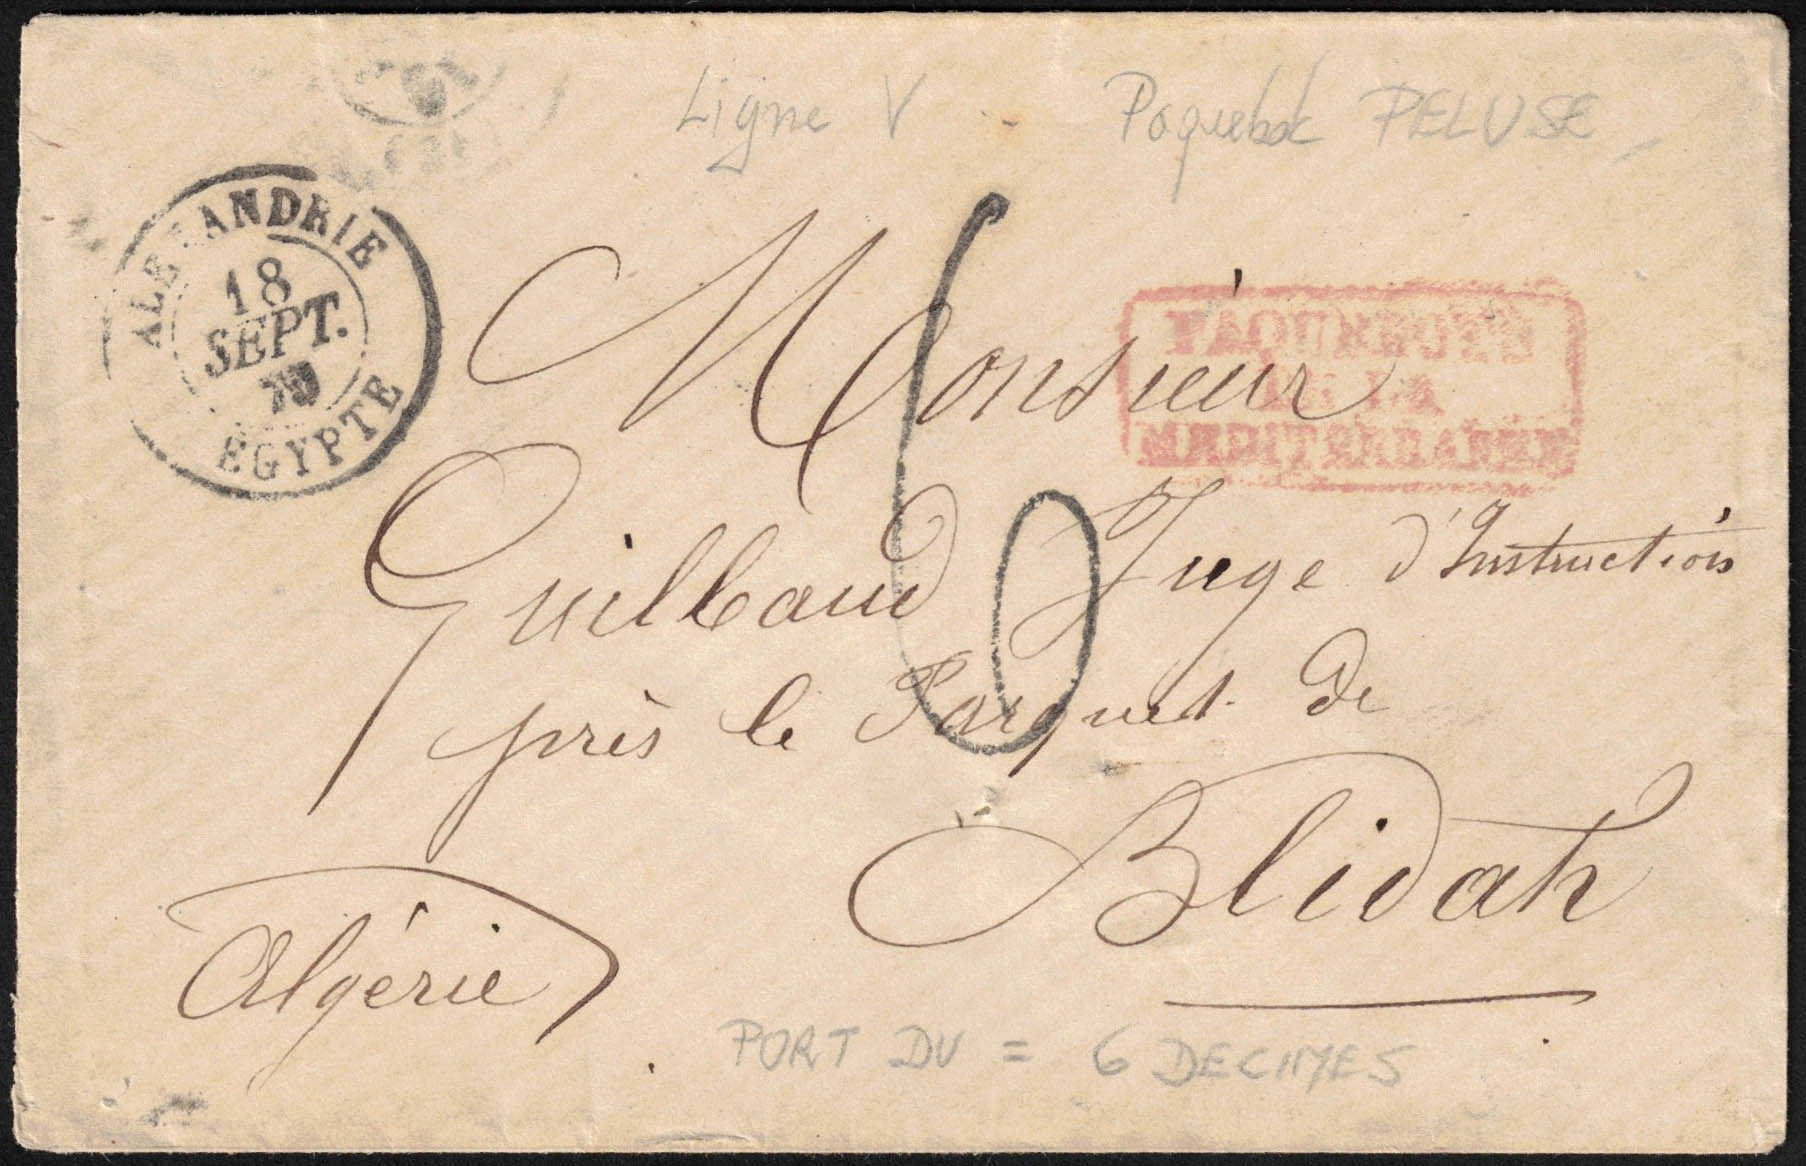 Ligne V Paquebot PELUSE
ALEXANDRIE
18
SEPT.
EGYPTE
6
PAQUEBOTS
DE LA
MEDITERRANEE
Monsieur
Guilbaud Juge d'Instruction
près le Parquet de
Blidah
Algérie
PORT DU = 6 DECIMES